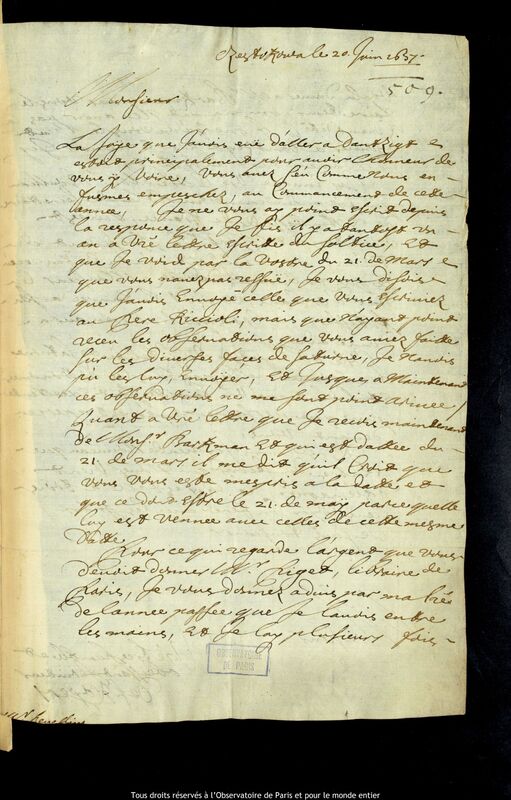 le 20. Juin 1657.
509.
Monsieur
La joye que J'avois eüe d'aller a Dantzigt
estoit principalement pour avoir l'honneur de
vous y voire, vous avez sçeu comme nous en
fusmes empeschez, au commancement de cette
année, Je ne vous ay point escrit depuis
la responce que Je fis il y a tantost un
an a vre lettre escritte du solstice, Et
que Je void par la vostre du 21. de Mars
que vous n'avez pas reffue, Je vous disois
que J'avois Envoyé celle que vous escrivez
au Pere Riccioli, mais que n'ayant point
receu les observations que vous avez faitte
sur les diverses faces de saturne, Je n'avois
pu les luy Envoyer, Et Jusques a Maintenant
ces observations ne me sont point
Quant a vre lettre que Je recois maintenant
de Monsr Et qui est dattée du
21. de mars il me dit qu'il Croit que
vous vous este mespris a la datte et
que ce doit Estre le 21. de may parce quelle
luy est venuee avec celles de cette mesme
datte
Pour ce qui regarde l'argent que vous
devoit donner Mr Piget, libraire de
Paris, Je vous donnez advis par ma lre
de l'année passée que Je l'avois entre
les mains, Et Je l'ay plusieurs fois
OBSERVATOIRE
DE PARIS
Tous droits réservés à l'Observatoire de Paris et pour le monde entier